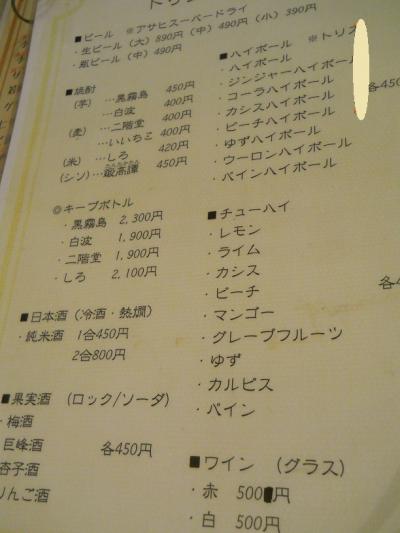 ■ビール ※アサヒスーパードライ
・生ビール（大）890円（中）490円（小）390円
・瓶ビール（中）490円
■焼酎
（芋） …黒霧島 450円
…白波 400円
（麦） …二階堂 400円
…いいちこ 400円
（米） …しろ 420円
（シソ）…鍛高譚 450円
◎キープボトル
・黒霧島 2,300円
・白波 1,900円
・二階堂 1,900円
・しろ 2,100円
■日本酒（冷酒・熱燗）
・純米酒 1合450円
2合800円
■果実酒 （ロック/ソーダ）
・梅酒
巨峰酒
杏子酒
りんご酒
各450円
■ハイボール ※トリス
・ハイボール
・ジンジャーハイボール
・コーラハイボール
・カシスハイボール
・ピーチハイボール
・ゆずハイボール
・ウーロンハイボール
・パインハイボール
各450
■チューハイ
・レモン
・ライム
・カシス
・ピーチ
・マンゴー
・グレープフルーツ
・ゆず
・カルピス
・パイン
各4
■ワイン （グラス）
・赤 500円
・白 500円